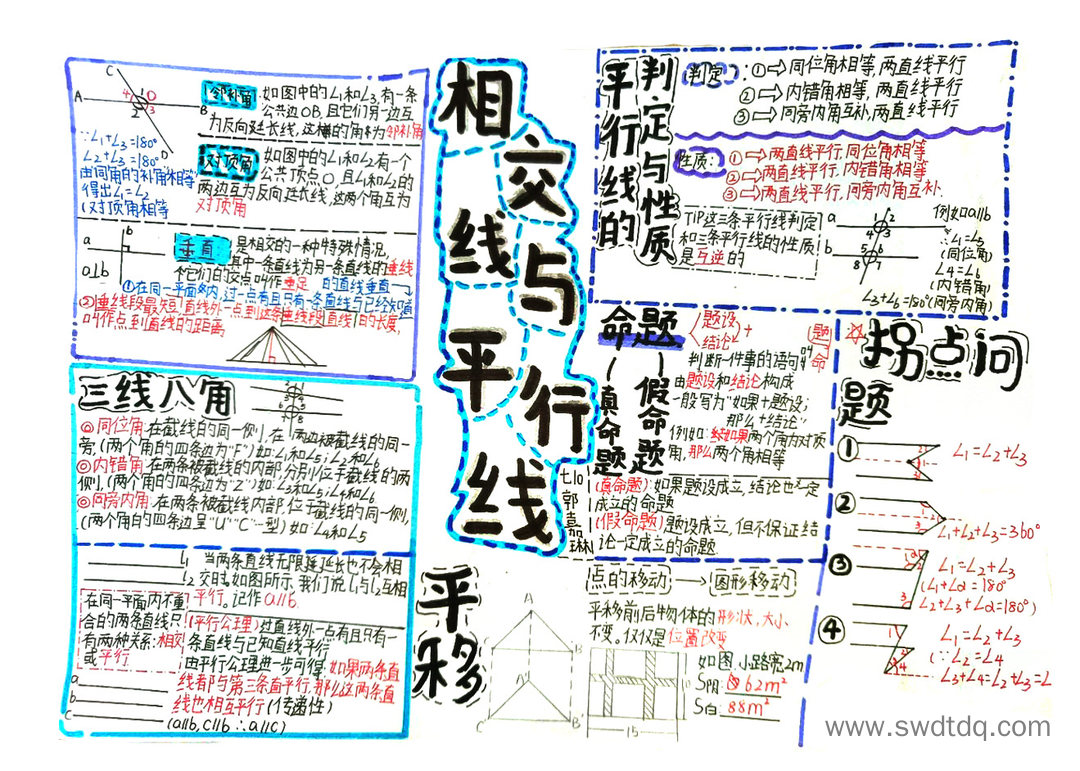 相交与平行线
七10郭嘉琳
C
A
B
D
O
4
1
3
2
∵∠1+∠3=180°
∠2+∠3=180°
由同角的补角相等
得出∠1=∠2
(对顶角相等
邻补角:如图中的∠1和∠3,有一条
公共边OB,且它们另一边互
为反向延长线,这样的角称为邻补角
对顶角:如图中的∠1和∠2有一个
公共顶点O,且∠1和∠2的
两边互为反向延长线,这两个角互为
对顶角
b
a
a⊥b
垂直:是相交的一种特殊情况,
其中一条直线为另一条直线的垂线
它们的交点叫作垂足
①在同一平面内,过一点有且只有一条直线与已经知道
的直线垂直
②垂线段最短,直线外一点到这条垂线段直线1的长度,
叫作点到直线的距离
三线八角
◎同位角:在截线的同一侧,在两边被截线的同一
旁,(两个角的四条边为"F")如:∠1和∠5;∠2和∠6
◎内错角:在两条被截线的内部,分别位于截线的两
侧,(两个角的四条边为"Z")如:∠3和∠5;∠4和∠6
◎同旁内角:在两条被截线内部,位于截线的同一侧,
(两个角的四条边呈"U""C"型)如∠4和∠5
l1
l2
当两条直线无限延延长也不会相
交时,如图所示,我们说l1与l2互相
平行,记作a∥b.
在同一平面内不重
合的两条直线只
有两种关系:相交
或平行
(平行公理)过直线外一点有且只有一
条直线与已知直线平行
由平行公理进一步可得:如果两条直
线都与第三条直平行,那么这两条直
线也相互平行(传递性)
a
b
c
(a∥b,c∥b∴a∥c)
平行线的
判定与性质
判定:①⇒同位角相等,两直线平行
②⇒内错角相等,两直线平行
③⇒同旁内角互补,两直线平行
性质:①⇒两直线平行,同位角相等
②⇒两直线平行,内错角相等
③⇒两直线平行,同旁内角互补.
TIP这三条平行线判定
和三条平行线的性质
是互逆的
a
1
2
4
3
b
5
6
8
7
例如a∥b
∴∠1=∠5
(同位角)
∠4=∠6
(内错角)
∠3+∠6=180°(同旁内角)
命题
题设
结论
+
(真命题
(假命题
判断一件事的语句叫命题
由题设和结论构成
一般写为"如果+题设;
那么+结论"
例如:如果两个角为对顶
角,那么两个角相等
(真命题):如果题设成立,结论也一定
成立的命题
(假命题):题设成立,但不保证结
论一定成立的命题.
平移
点的移动
图形移动
平移前后物体的形状,大小
不变。仅仅是位置改变
A
B
C
A'
B'
C'
15
如图,小路宽2m
S阴:62m²
S白:88m²
拐点问题
①
∠1=∠2+∠3
②
∠1+∠2+∠3=360°
③
∠1=∠2+∠3
(∠1+∠α=180°
∠2+∠3+∠α=180°)
④
∠1=∠2+∠3
(∵∠2=∠4
∠3+∠4=∠2+∠3=∠
www.swdtdq.com